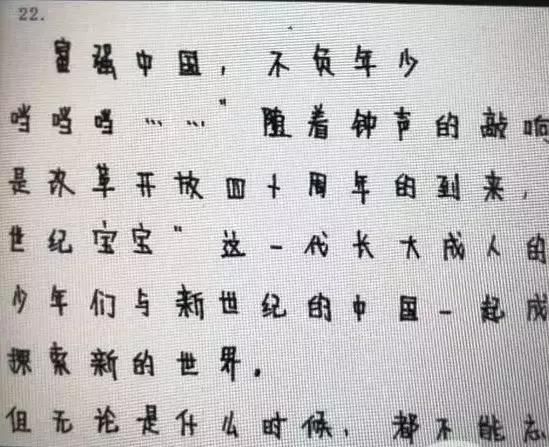 22.
富强中国，不负年少
当当当……"随着钟声的敲响
是改革开放四十周年的到来，
世纪宝宝"这一代长大成人的
少年们与新世纪的中国一起成
探索新的世界。
但无论是什么时候，都不能忘